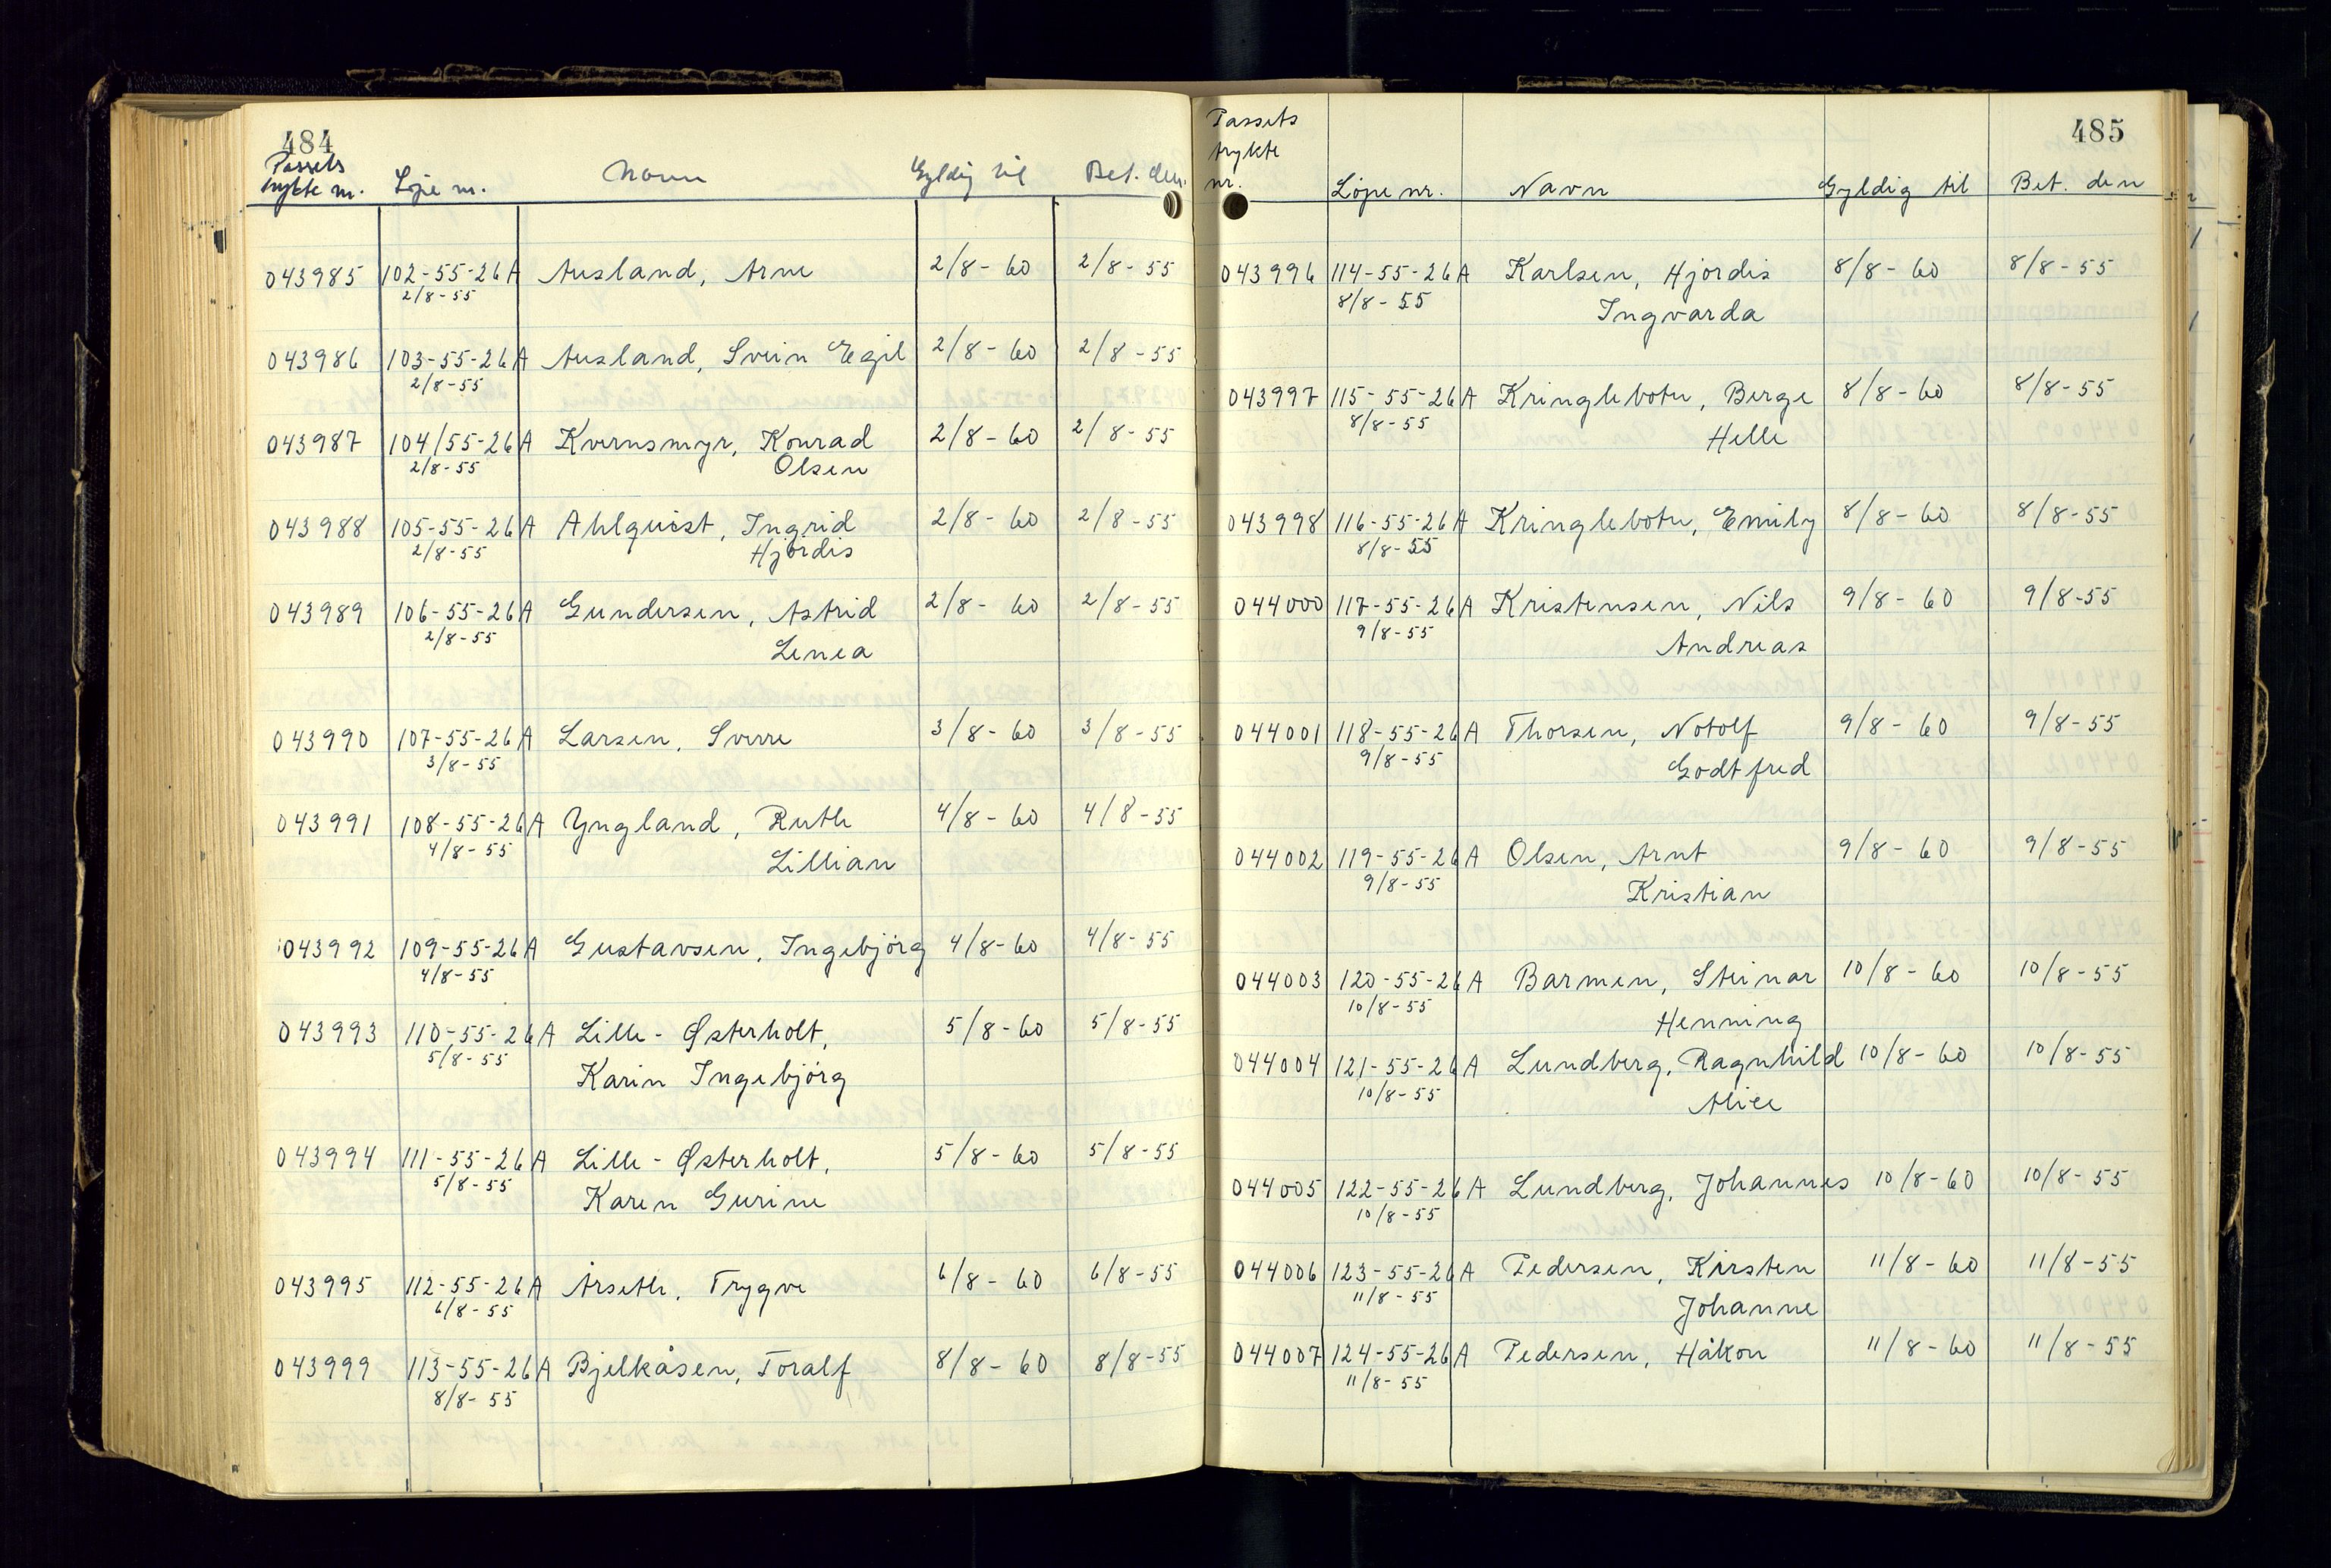 484
Passets
trykte nr. Løpe nr. Navn Gyldig til Bet. den
043985 102-55-26A Ausland, Arne 2/8-60 2/8-55
2/8-55
043986 103-55-26A Ausland, Svein Egil 2/8-60 2/8-55
2/8-55
043987 104/55-26A Kvernsmyr, Konrad 2/8-60 2/8-55
2/8-55 Olsen
043988 105-55-26A Ahlquist, Ingrid 2/8-60 2/8-55
2/8-55 Hjördis
043989 106-55-26A Gundersen, Astrid 2/8-60 2/8-55
2/8-55 Linea
043990 107-55-26A Larsen, Sverre 3/8-60 3/8-55
3/8-55
043991 108-55-26A Yngland, Ruth 4/8-60 4/8-55
4/8-55 Lillian
043992 109-55-26A Gustavsen, Ingebjörg 4/8-60 4/8-55
4/8-55
043993 110-55-26A Lille-Østerholt, 5/8-60 5/8-55
5/8-55 Karin Ingebjörg
043994 111-55-26A Lille-Østerholt, 5/8-60 5/8-55
5/8-55 Karen Gurine
043995 112-55-26A Årseth, Trygve 6/8-60 6/8-55
6/8-55
043999 113-55-26A Bjelkåsen, Toralf 8/8-60 8/8-55
8/8-55
485
Passets
trykte
nr. Löpe nr. Navn Gyldig til Bet. den
043996 114-55-26A Karlsen, Hjördis 8/8-60 8/8-55
8/8-55 Ingvarda
043997 115-55-26A Kringlebotn, Berge 8/8-60 8/8-55
8/8-55 Helle
043998 116-55-26A Kringlebotn, Emily 8/8-60 8/8-55
8/8-55
044000 117-55-26A Kristensen, Nils 9/8-60 9/8-55
9/8-55 Andreas
044001 118-55-26A Thorsen, Notolf 9/8-60 9/8-55
9/8-55 Godtfred
044002 119-55-26A Olsen, Arnt 9/8-60 9/8-55
9/8-55 Kristian
044003 120-55-26A Barmen, Steinar 10/8-60 10/8-55
10/8-55 Henning
044004 121-55-26A Lundberg, Ragnhild 10/8-60 10/8-55
10/8-55 Alice
044005 122-55-26A Lundberg, Johannes 10/8-60 10/8-55
10/8-55
044006 123-55-26A Pedersen, Kirsten 11/8-60 11/8-55
11/8-55 Johanne
044007 124-55-26A Pedersen, Håkon 11/8-60 11/8-55
11/8-55